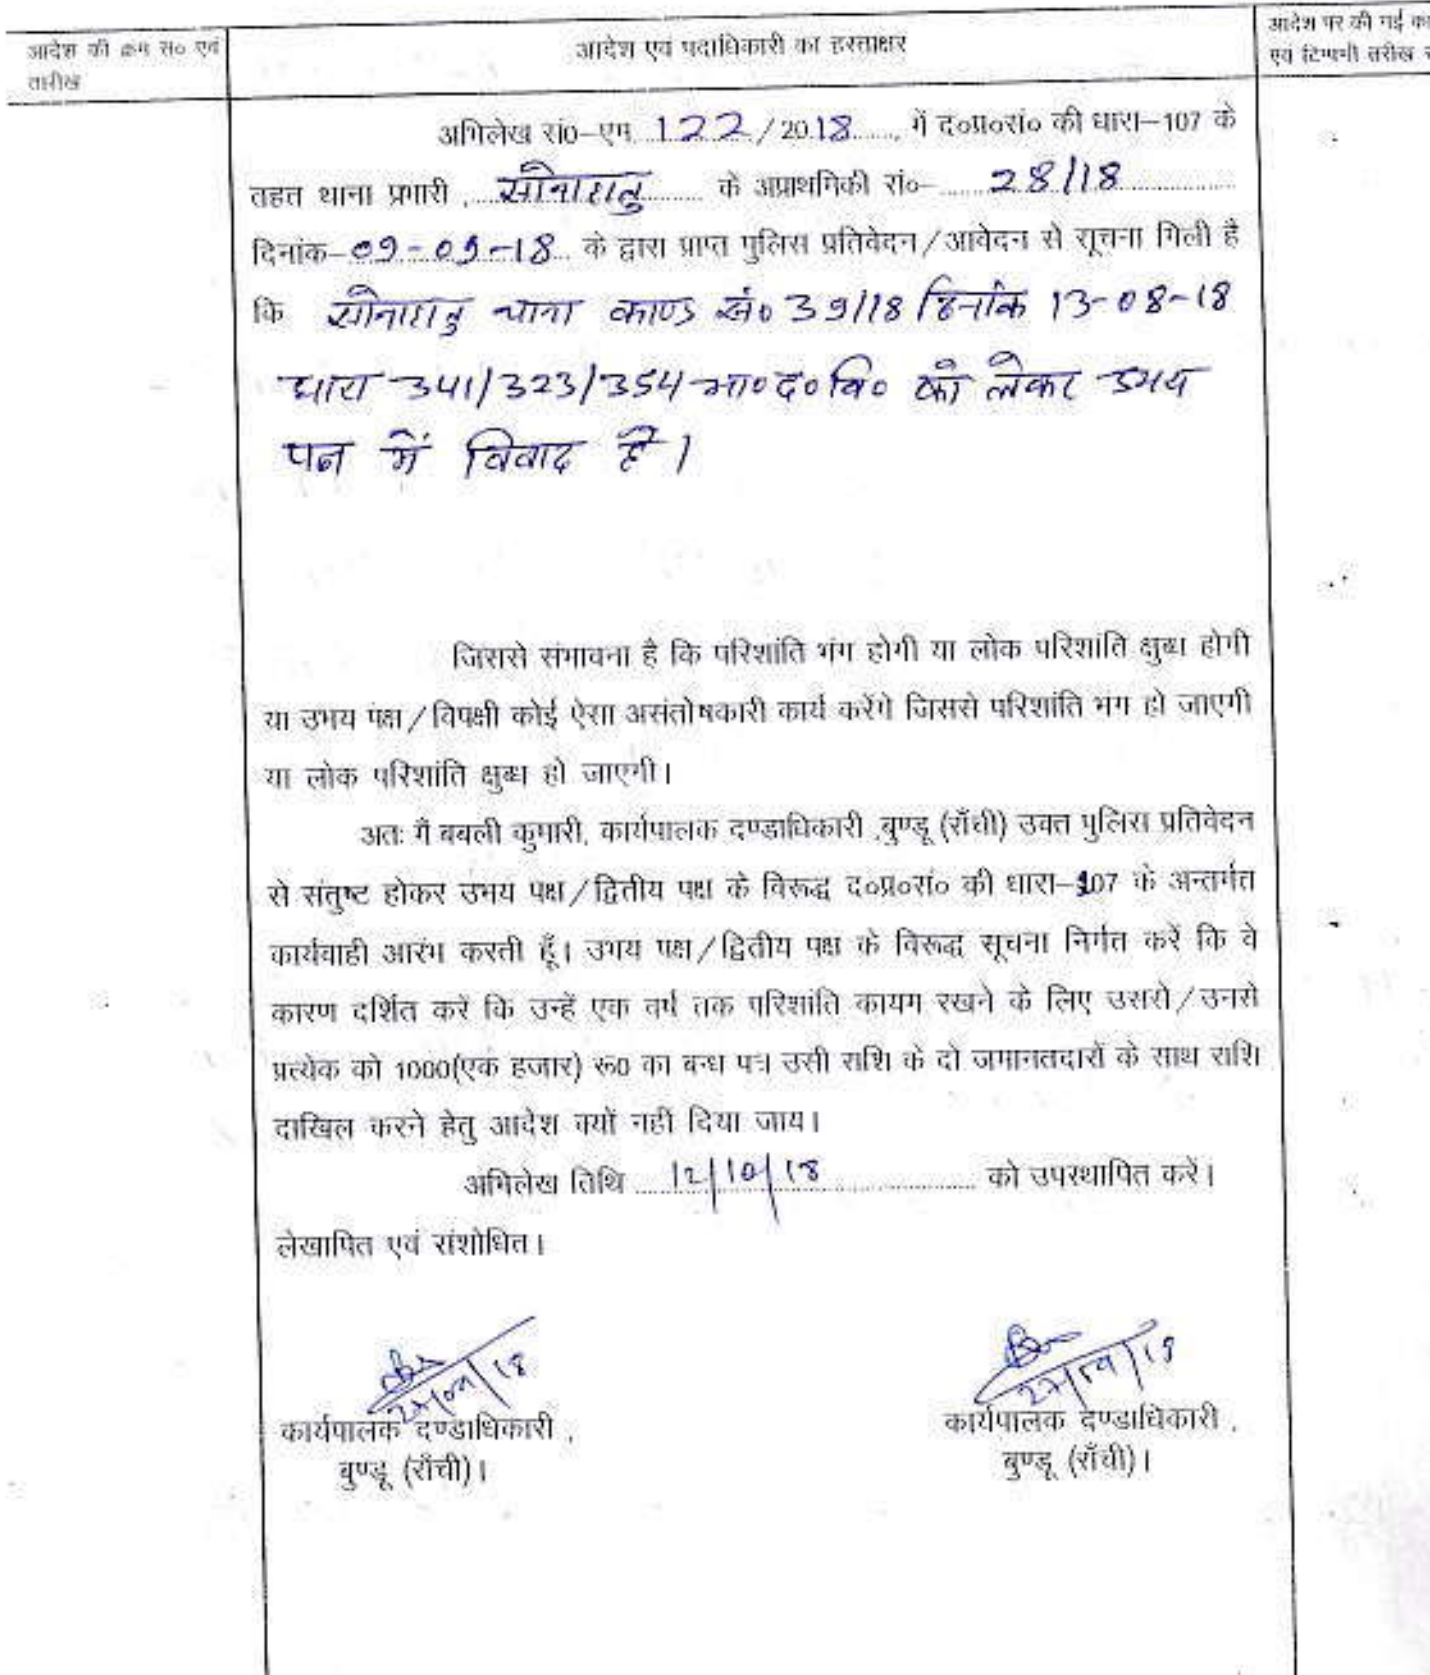 आदेश की क्रम सं० एवं तारीख
आदेश एवं पदाधिकारी का हस्ताक्षर
आदेश पर की गई
एवं टिप्पणी तारीख
अभिलेख सं०-एम 122/2018, में द०प्र०सं० की धारा-107 के
तहत थाना प्रभारी, सोनाहातु के अप्राथमिकी सं०- 28/18
दिनांक-09-09-18 के द्वारा प्राप्त पुलिस प्रतिवेदन/आवेदन से सूचना मिली है
कि सोनाहातु थाना काण्ड सं० 39/18 दिनांक 13-08-18
धारा 341/323/354 भा०द०वि० को लेकर उभय
पक्ष में विवाद है।
जिससे संभावना है कि परिशांति भंग होगी या लोक परिशांति क्षुब्ध होगी
या उभय पक्ष/विपक्षी कोई ऐसा असंतोषकारी कार्य करेंगे जिससे परिशांति भंग हो जाएगी
या लोक परिशांति क्षुब्ध हो जाएगी।
अतः मैं बबली कुमारी, कार्यपालक दण्डाधिकारी ,बुण्डू (राँची) उक्त पुलिस प्रतिवेदन
से संतुष्ट होकर उभय पक्ष/द्वितीय पक्ष के विरूद्ध द०प्र०सं० की धारा-107 के अन्तर्गत
कार्यवाही आरंभ करती हूँ। उभय पक्ष/द्वितीय पक्ष के विरूद्ध सूचना निर्गत करें कि वे
कारण दर्शित करें कि उन्हें एक वर्ष तक परिशांति कायम रखने के लिए उससे/उनसे
प्रत्येक को 1000(एक हजार) रू0 का बन्ध पत्र उसी राशि के दो जमानतदारों के साथ राशि
दाखिल करने हेतु आदेश क्यों नही दिया जाय।
अभिलेख तिथि 12/10/18 को उपस्थापित करें।
लेखापित एवं संशोधित।
27/09/18
27/09/18
कार्यपालक दण्डाधिकारी,
बुण्डू (राँची)।
कार्यपालक दण्डाधिकारी,
बुण्डू (राँची)।